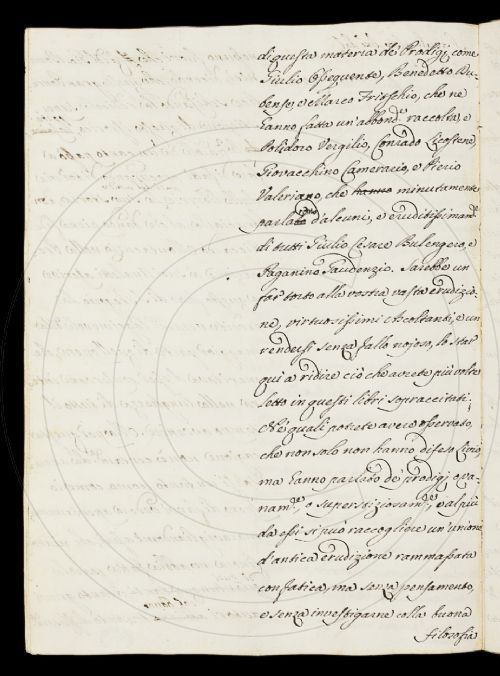 di questa materia de' Prodigj come
Giulio Ossequente, Benedetto Bu-
dense, e Marco Fritschio, che ne
hanno fatta un'abbond.e raccolta, e
Polidoro Vergilio, Conrado Licostene,
Giovacchino Camerario, e Pierio
Valeriano, che hanno minutamente
parlato d'alcuni, e eruditissimam.e
di tutti Giulio Cesare Bulengero, e
Paganino Gaudenzio. Sarebbe un
far torto alla vostra vasta erudizio-
ne, virtuosissimi Ascoltanti, e un
rendersi senza fallo nojoso, lo star
qui a ridire ciò che avete più volte
letto in questi libri sopraccitati.
Ne' quali potrete avere osservato,
che non solo non hanno difeso Livio,
ma hanno parlato de' prodigj o va-
nam.e, o superstiziosam.e, e al più
da essi si può raccogliere un'unione
d'antica erudizione rammassata
con fatica, ma senza pensamento,
e senza investigarne colla buona
filosofia